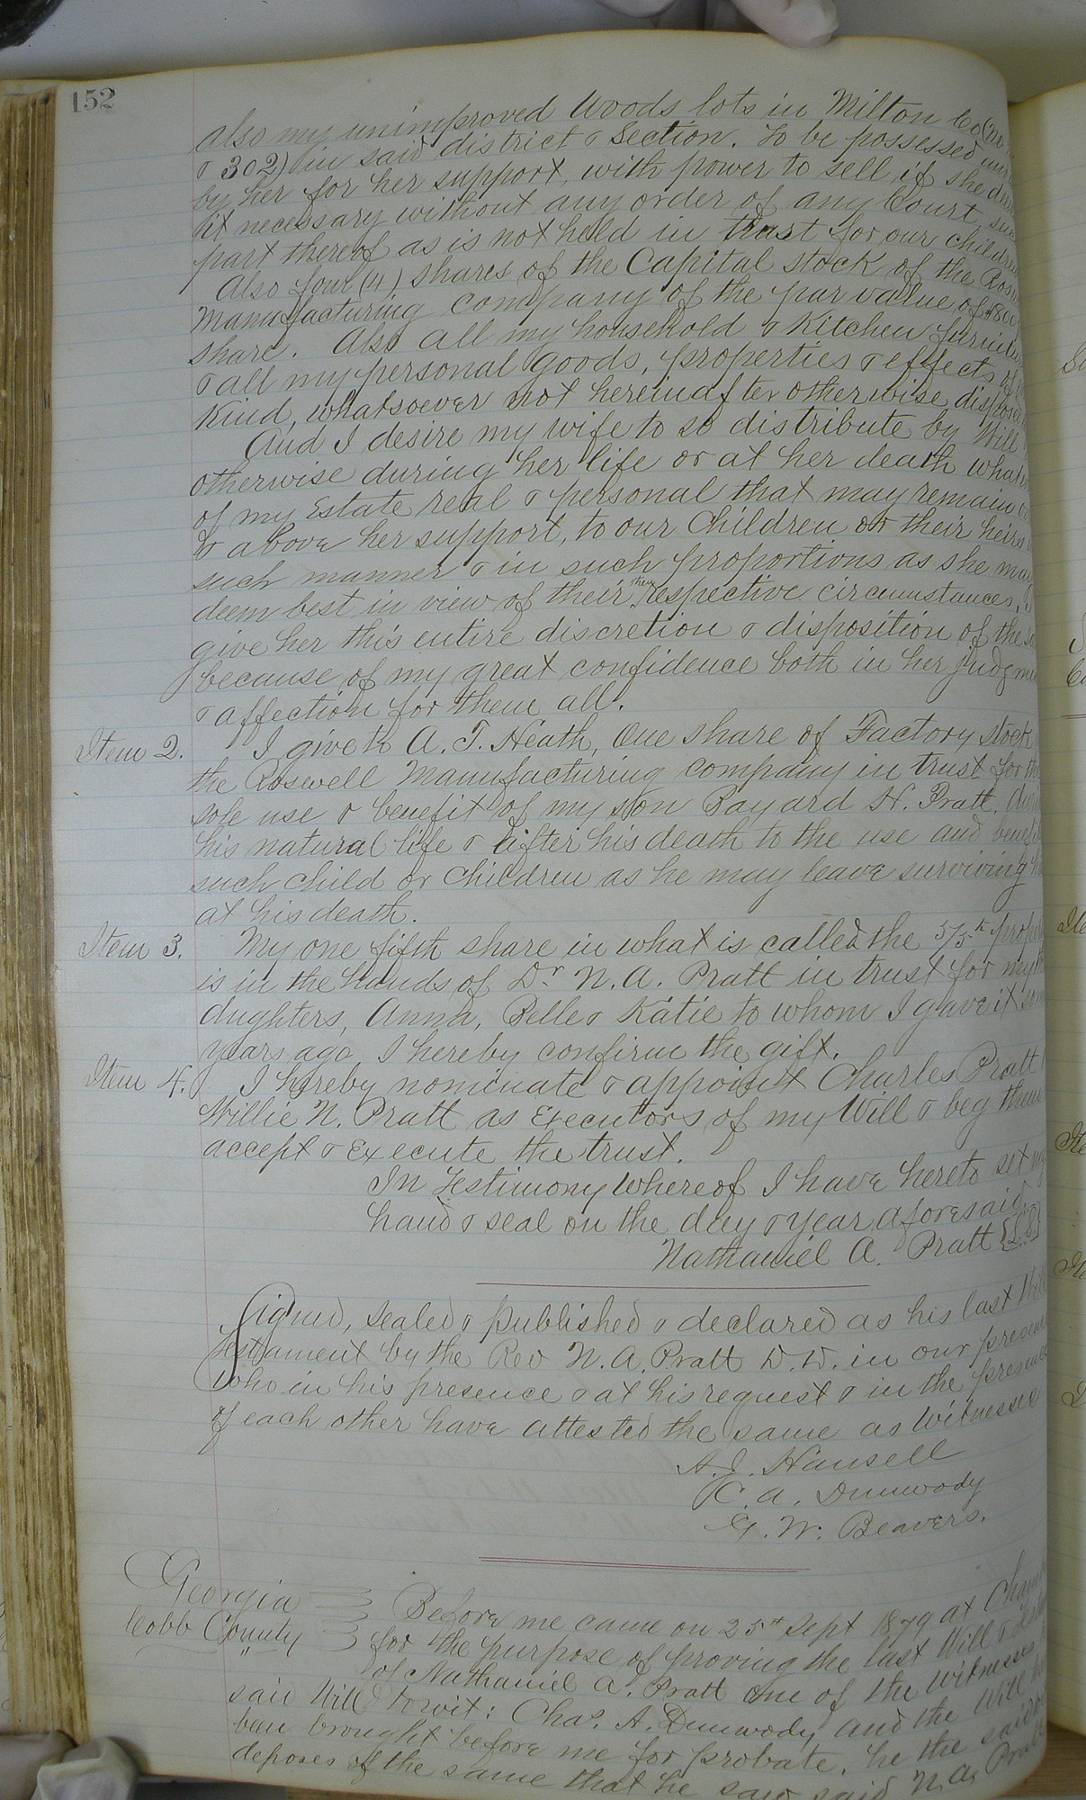 152
also my unimproved Woods lots in Milton Co (No
& 302) in said district & Section. To be possessed
by her for her support, with power to sell, if she
it necessary without any order of any Court, such
part thereof as is not held in trust for our children
Also four (4) shares of the Capital stock of the
Manufacturing company of the par value of
share. Also all my household & Kitchen furniture
& all my personal goods, properties & effects of
Kind, whatsoever not hereinafter otherwise disposed
And I desire my wife to so distribute by Will
otherwise during her life or at her death
of my Estate real & personal that may remain
& above her support, to our Children or their heirs
such manner & in such proportions as she may
deem best in view of their then respective circumstances,
give her this entire discretion & disposition of the
because of my great confidence both in her
& affection for them all.
Item 2. I give to A. T. Heath, One share of Factory Stock
the Roswell Manufacturing company in trust for the
sole use & benefit of my son Bayard H. Pratt,
his natural life & after his death to the use and
such child or children as he may leave surviving
at his death.
Item 3. My one fifth share in what is called the 5/5th
is in the hands of Dr N. A. Pratt in trust for my
dughters, Anna, Belle & Katie to whom I gave it
years ago, I hereby confirm the gift.
Item 4. I hereby nominate & appoint Charles Pratt
Willie N. Pratt as Executors of my Will & beg them
accept & Execute the trust.
In Testimony Whereof I have hereto set my
hand & seal on the day & year aforesaid.
Nathaniel A. Pratt {L.S}
Signed, sealed & published & declared as his last
Testament by the Rev N. A. Pratt D. D. in our
who in his presence & at his request & in the
of each other have attested the same as Witnesses
A. J. Hansell
C. A. Dunwody
G. W. Beavers.
Georgia
Cobb County
Before me came on 25th Sept 1879 at
for the purpose of proving the last Will &
of Nathaniel A. Pratt one of the witnesses
said Will towit: Chas. A. Dunwody and the Will
been brought before me for probate, he the said
deposes of the same that he saw said N. A. Pratt